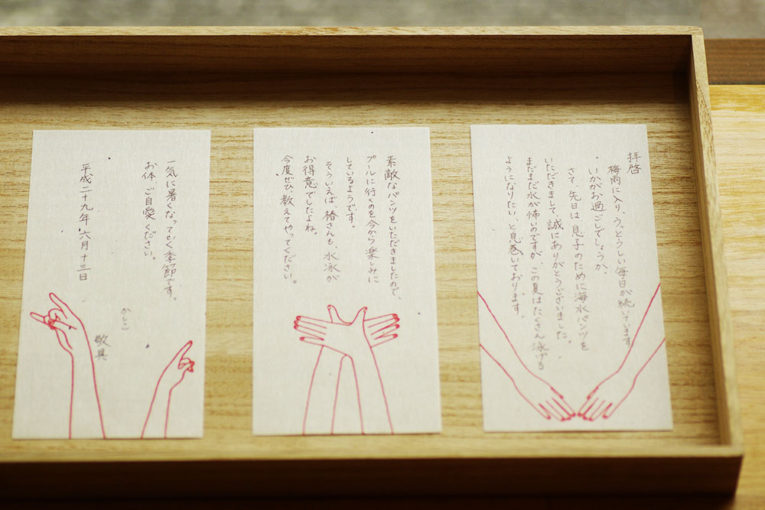 拝啓
梅雨に入り、うっとうしい毎日が続いています。
いかがお過ごしでしょうか。
さて、先日は息子のために海水パンツを
いただきまして、誠にありがとうございました。
まだまだ水が怖いのですが、この夏はたくさん泳げる
ようになりたい、と意気巻いております。
素敵なパンツをいただきましたので、
プールに行くのを今から楽しみに
しているようです。
そういえば、椿さんも、水泳が
お得意でしたよね。
今度ぜひ、教えてやってください。
一気に暑くなってくる季節です。
お体、ご自愛ください。
かしこ
敬具
平成二十九年 六月十三日